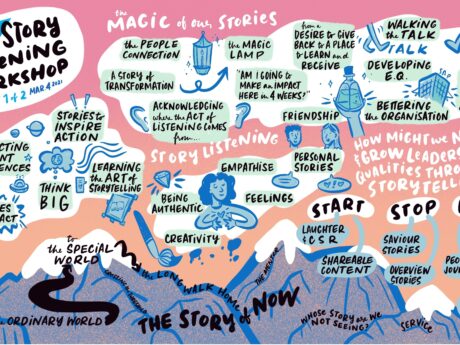 STORY
LISTENING
WORKSHOP
1+2 MAR 4 2021
the MAGIC of our STORIES
the PEOPLE
CONNECTION
the MAGIC
LAMP
from a
DESIRE to GIVE
BACK to A PLACE
to LEARN and
RECEIVE
WALKING
the TALK
TALK
DEVELOPING
E.Q.
BETTERING the
ORGANISATION
A STORY of
TRANSFORMATION
"AM I GOING to
MAKE an IMPACT
HERE in 4 WEEKS?"
ACKNOWLEDGING
where the ACT of
LISTENING COMES
from...
FRIENDSHIP
STORIES to
INSPIRE
ACTION
THINK
BIG
LEARNING
the ART of
STORYTELLING
STORY LISTENING
EMPATHISE
PERSONAL
STORIES
BEING
AUTHENTIC
FEELINGS
CREATIVITY
HOW MIGHT WE
& GROW LEADERS
QUALITIES
STORYTELL
START
STOP
LAUGHTER
& C S R
SHAREABLE
CONTENT
SAVIOUR
STORIES
OVERVIEW
STORIES
to
the SPECIAL
WORLD
ORDINARY WORLD
the LONG WALK HOME
THE MENTOR
THE STORY of NOW
WHOSE STORY are WE
NOT SEEING?
SERVICE